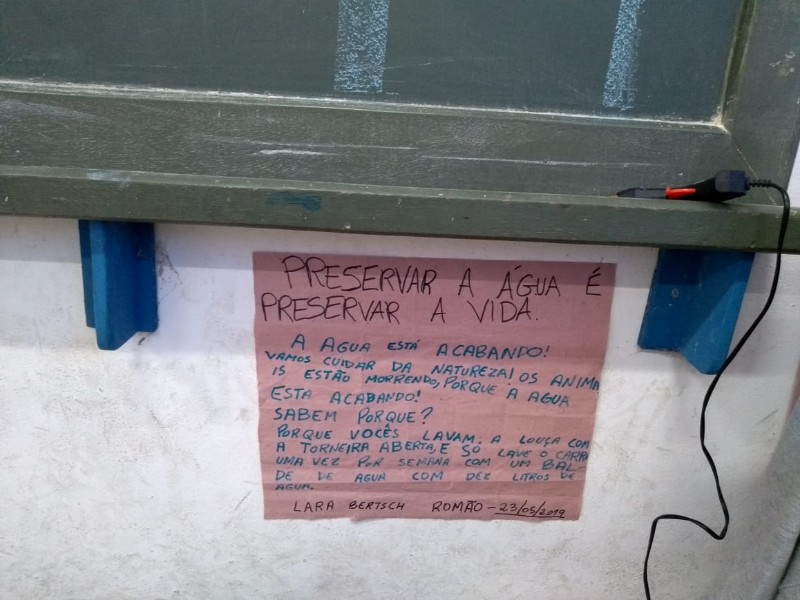 PRESERVAR A ÁGUA É
PRESERVAR A VIDA.
A AGUA ESTÁ ACABANDO!
VAMOS CUIDAR DA NATUREZA! OS ANIMA
IS ESTÃO MORRENDO, PORQUE A AGUA
ESTA ACABANDO!
SABEM PORQUE?
PORQUE VOCÊS LAVAM. A LOUÇA COM
A TORNEIRA ABERTA, E SÓ LAVE O CARRO
UMA VEZ POR SEMANA COM UM BAL-
DE DE AGUA COM DEZ LITROS DE
AGUA.
LARA BERTSCH ROMÃO - 23/05/2019